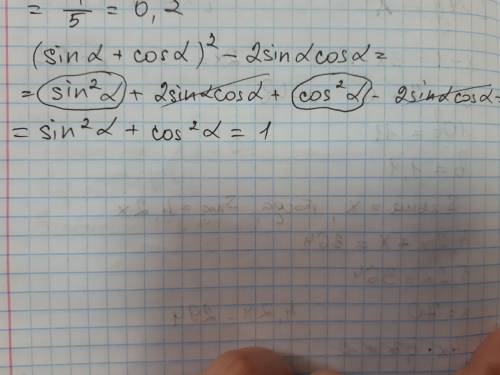 = 1/5 = 0,2
(sinα + cosα)² - 2sinαcosα =
= sin²α + 2sinαcosα + cos²α - 2sinαcosα =
= sin²α + cos²α = 1